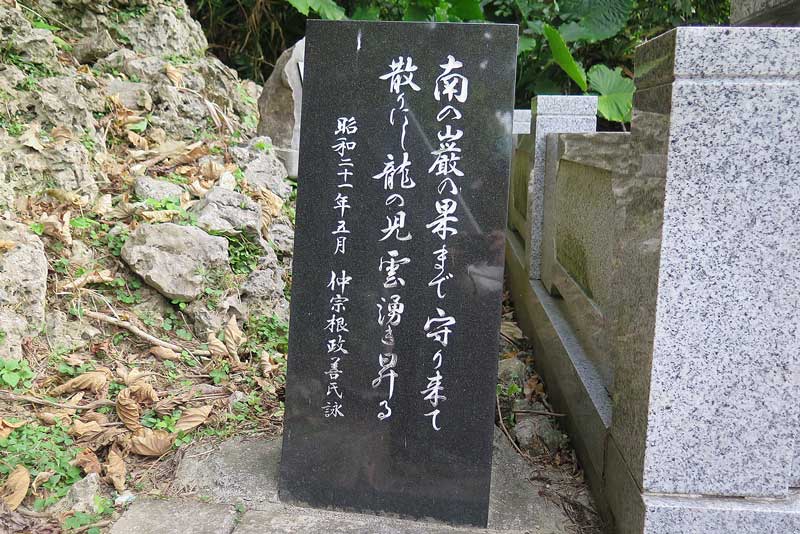 南の巌の果まで守り来て
散りにし龍の児雲湧き昇る
昭和二十一年五月　仲宗根政善氏詠